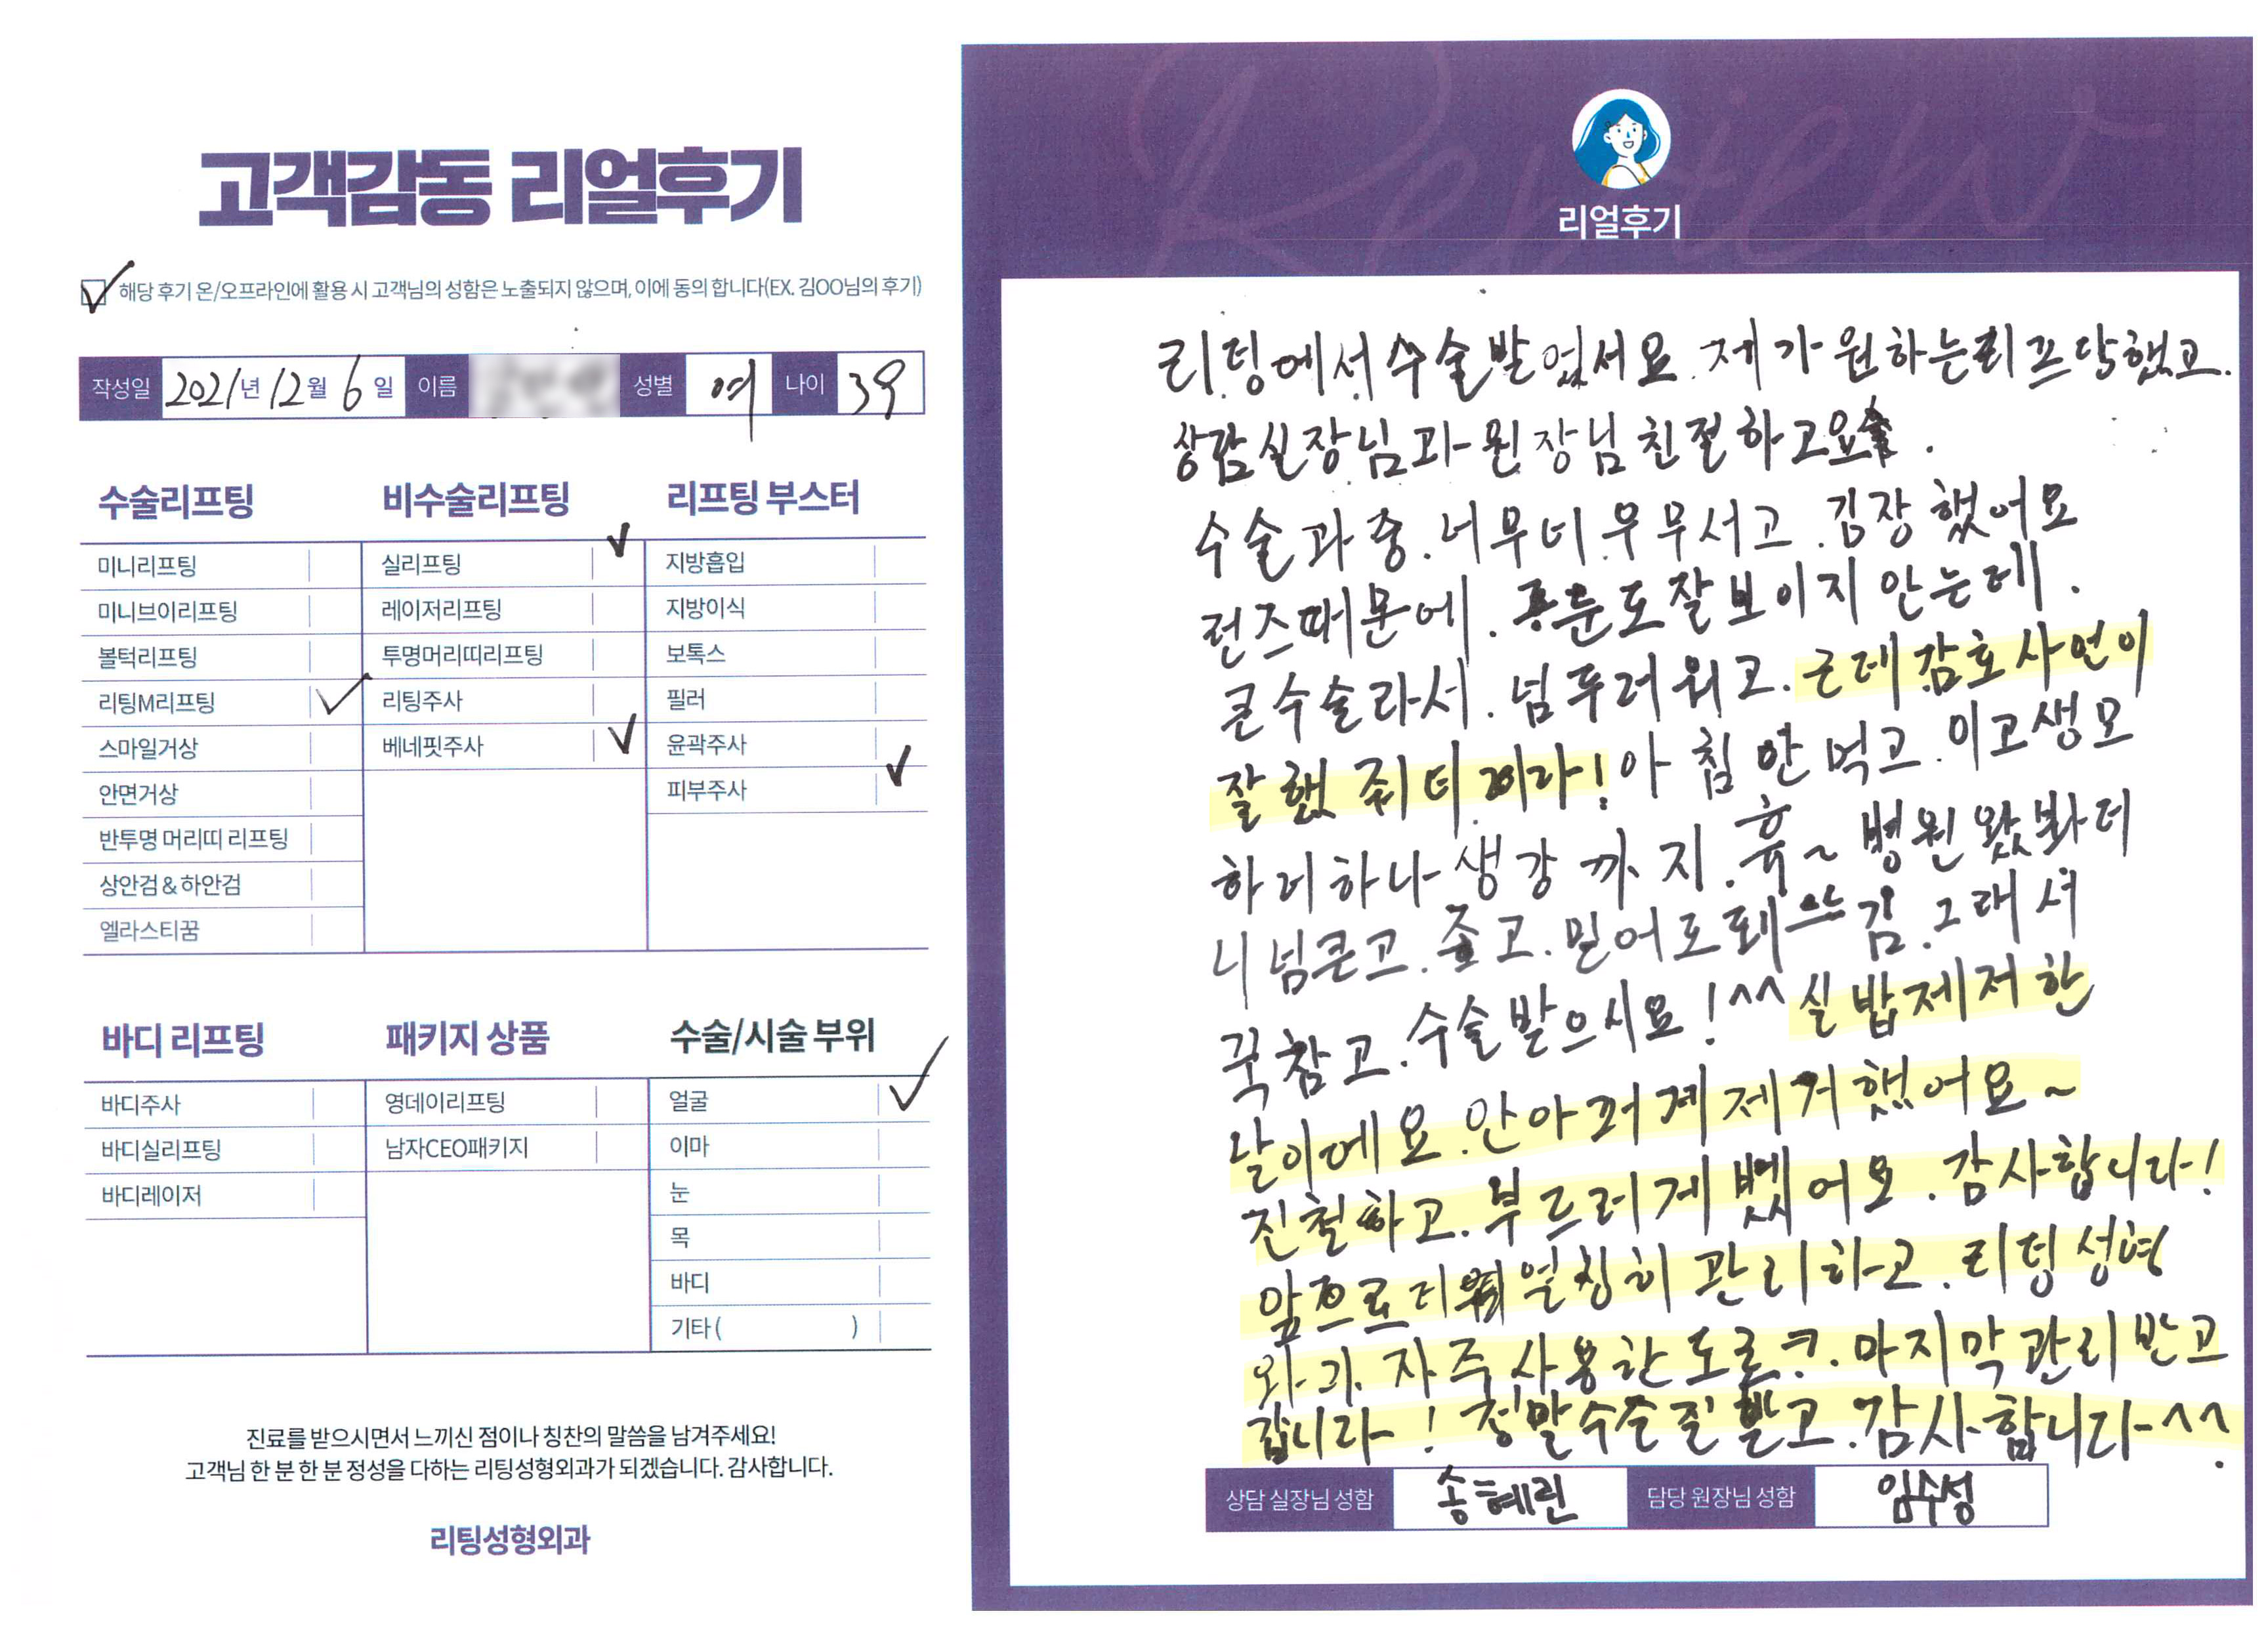 고객감동 리얼후기
해당 후기 온/오프라인에 활용 시 고객님의 성함은 노출되지 않으며, 이에 동의 합니다(EX. 김OO님의 후기)
작성일 2021년 12월 6일 이름 성별 여 나이 39
수술리프팅
미니리프팅
미니브이리프팅
볼턱리프팅
리팅M리프팅
스마일거상
안면거상
반투명 머리띠 리프팅
상안검&하안검
엘라스티꿈
비수술리프팅
실리프팅
레이저리프팅
투명머리띠리프팅
리팅주사
베네핏주사
리프팅 부스터
지방흡입
지방이식
보톡스
필러
윤곽주사
피부주사
바디 리프팅
바디주사
바디실리프팅
바디레이저
패키지 상품
영데이리프팅
남자CEO패키지
수술/시술 부위
얼굴
이마
눈
목
바디
기타( )
진료를 받으시면서 느끼신 점이나 칭찬의 말씀을 남겨주세요!
고객님 한 분 한 분 정성을 다하는 리팅성형외과가 되겠습니다. 감사합니다.
리팅성형외과
Review
리얼후기
리팅에서 수술발었서요. 제가 원하는 리프닥했고.
상감실장님과 원장님 친절하고요.
수술과중. 너무너무 무서고. 김장했어요
런즈때문에. 눈도 잘보이지 안는데.
큰수술라서. 넘 두러워고. 근데 감호사언이
잘했줘더라! 아침 안먹고. 이고생모
하러하나 생강까지. 휴~ 병원왔봐더
니 넘큰고. 좋고. 믿어도 퇘 느김. 그래서
꾹참고. 수술받으시요! ^^ 실밥제저한
날이에요. 안아꺼게 제거했어요~
진철하고. 부드러게 뺐어요. 감사합니다!
앞으로 더 열칭히 관리하고. 리팅성형
와가. 자주사용한도론ㅋ. 마지막관리받고
갑니다! 정말수술잘받고. 감사합니다^^.
상담 실장님 성함 송혜린 담당 원장님 성함 임수성